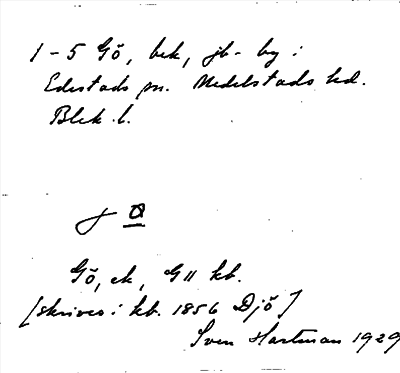 1-5 Gö, bek, jb-by i
Edestads sn. Medelstads hd.
Blek. l.
Gö, ek, G11 kb.
[skrives i kb. 1856 Djö]
Sven Hartman 1929